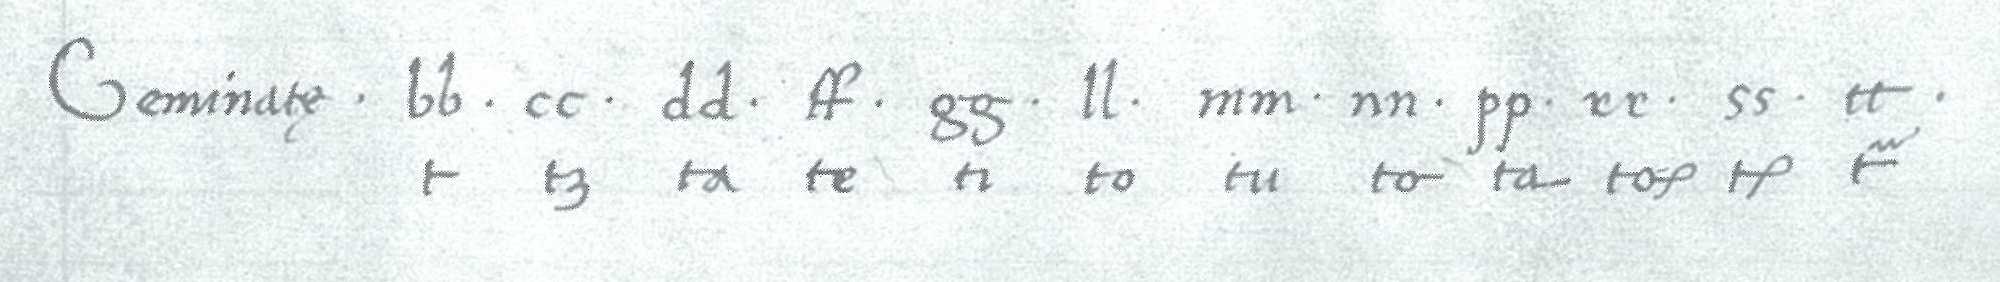 Geminatę · bb · cc · dd · ff · gg · ll · mm · nn · pp · rr · ss · tt ·
t tz ta te ti to tu to ta